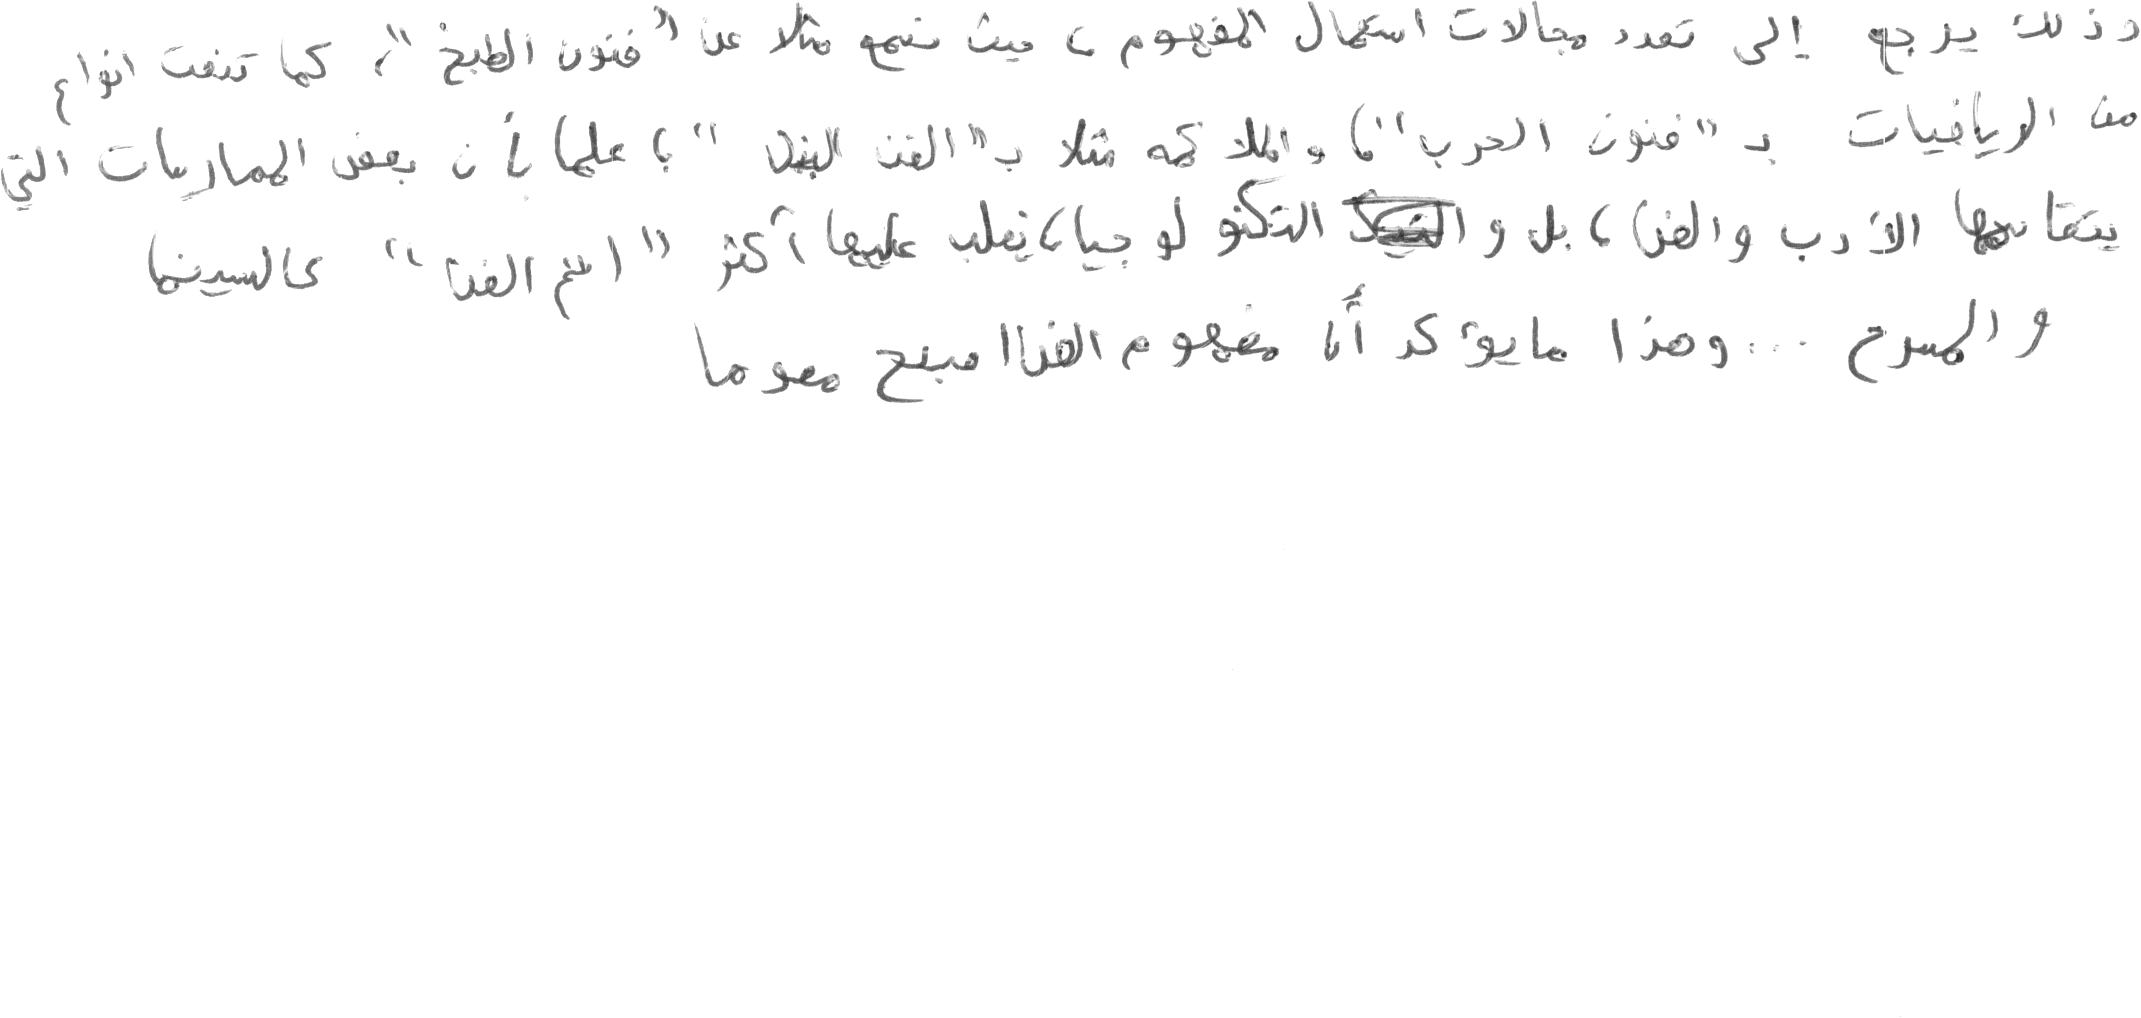 وذلك يرجع إلى تعدد مجالات استعمال المفهوم، حيث نسمع مثلا عن "فنون الطبخ"، كما تنعت انواع
من الرياضيات بـ "فنون الحرب"، والملاكمه مثلا بـ "الفن النبيل"، علما بأن بعض الممارسات التي
يتقاسمها الأدب والفن، بل و التكنولوجيا، يغلب عليها أكثر "اسم الفن" كالسينما
والمسرح ... وهذا مايؤكد أن مفهوم الفن اصبح معوما